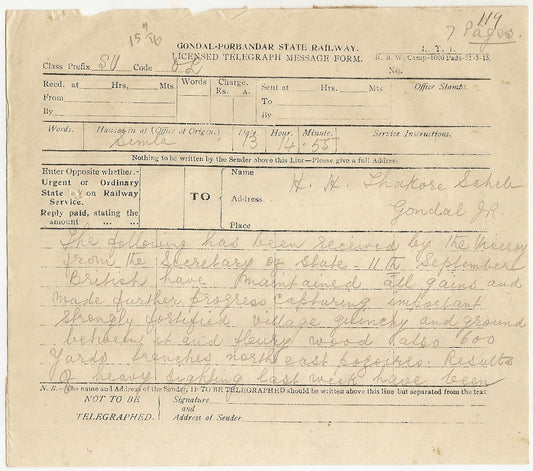 15/9 16
7 Pages
114
GONDAL-PORBANDAR STATE RAILWAY.
LICENSED TELEGRAPH MESSAGE FORM.
L. T. 1.
R. S. W. Camp-1000 Pads-21-3-13.
Class Prefix SU Code OL
No.
Recd. at Hrs. Mts
Words
Charge.
Rs. a.
Sent at Hrs. Mts.
Office Stamps.
From
To
By
By
Words.
Handed in at (Office of Origin.)
Date.
Hour.
Minute.
Service Instructions.
Simla
13
14
55
Nothing to be written by the Sender above this Line—Please give a full Address
Enter Opposite whether.-
Urgent or Ordinary
State or on Railway
Service.
Reply paid, stating the
amount ... ...
TO
Name
Address
Place
H. H. Thakore Saheb
Gondal JR
The following has been received by the Viceroy
from the Secretary of State 11th September
British have maintained all gains and
made further progress capturing important
strongly fortified village guinchy and ground
between it and fleury wood also 600
Yards trenches north east pozoires. Results
of heavy fighting last week have been
N. B.—The name and Address of the Sender, IF TO BE TELEGRAPHED should be written above this line but separated from the text.
NOT TO BE
TELEGRAPHED.
Signature
and
Address of Sender